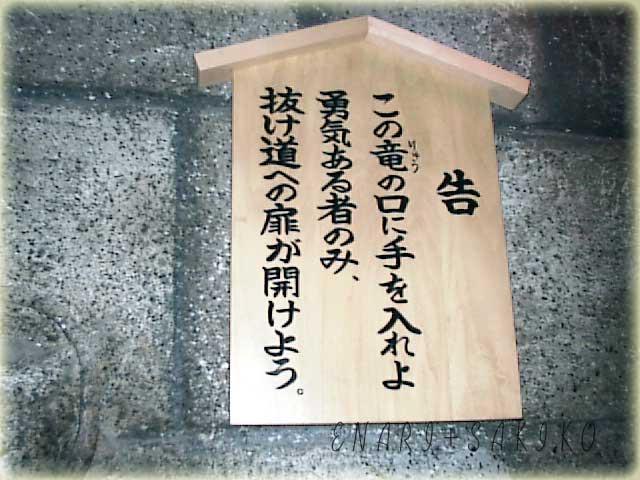 告
この竜の口に手を入れよ
りゅう
勇気ある者のみ、
抜け道への扉が開けよう。
ENARI+SAKIKO